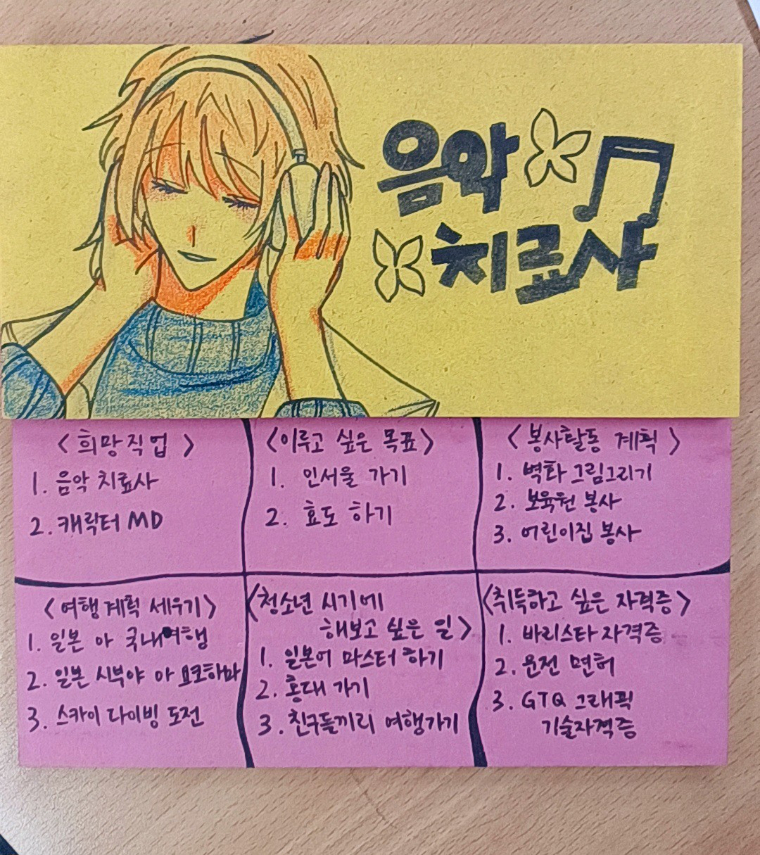 음악
치료사
<희망직업>
1. 음악 치료사
2. 캐릭터 MD
<이루고 싶은 목표>
1. 인서울 가기
2. 효도 하기
<봉사활동 계획>
1. 벽화 그림그리기
2. 보육원 봉사
3. 어린이집 봉사
<여행계획 세우기>
1. 일본 아 국내여행
2. 일본 시부야 아 요코하마
3. 스카이 다이빙 도전
<청소년 시기에
해보고 싶은 일>
1. 일본어 마스터 하기
2. 홍대 가기
3. 친구들끼리 여행가기
<취득하고 싶은 자격증>
1. 바리스타 자격증
2. 운전 면허
3. GTQ 그래픽
기술자격증